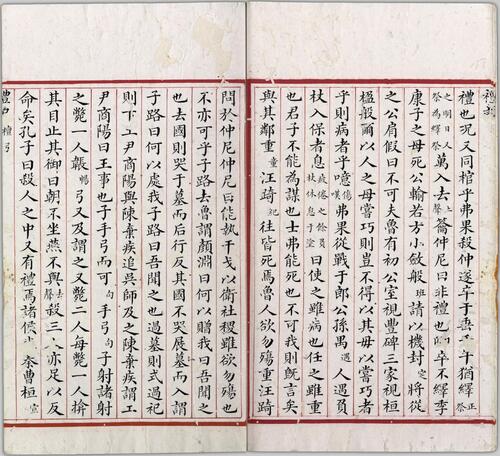 禮記
禮也況又同棺乎弗果殺仲遂卒于垂壬午猶繹正祭
之明日又祭為繹祭萬入去上聲籥仲尼曰非禮也卿卒不繹季
康子之母死公輸若方小斂般班請以機封窆將從
之公肩假曰不可夫魯有初公室視豐碑三家視桓
楹般爾以人之母嘗巧則豈不得以其毋以嘗巧者
乎則病者乎噫傷嘆弗果從戰于郎公孫禺遇人遇負
杖入保者息疲倦之餘負杖休息于塗曰使之雖病也任之雖重
也君子不能為謀也士弗能死也不可我則既言矣
與其鄰重童汪踦紀往皆死焉魯人欲勿殤重汪踦
問於仲尼仲尼曰能執干戈以衛社稷雖欲勿殤也
不亦可乎子路去魯謂顏淵曰何以贈我曰吾聞之
也去國則哭于墓而后行反其國不哭展墓而入謂
子路曰何以處我子路曰吾聞之也過墓則式過祀
則下工尹商陽與陳棄疾追吳師及之陳棄疾謂工
尹商陽曰王事也子手弓而可句手弓句子射諸射
之斃一人韔暢弓又及謂之又斃二人每斃一人揜
其目止其御曰朝不坐燕不與去聲殺三人亦足以反
命矣孔子曰殺人之中又有禮焉諸侯伐秦曹桓宣
禮記 檀弓